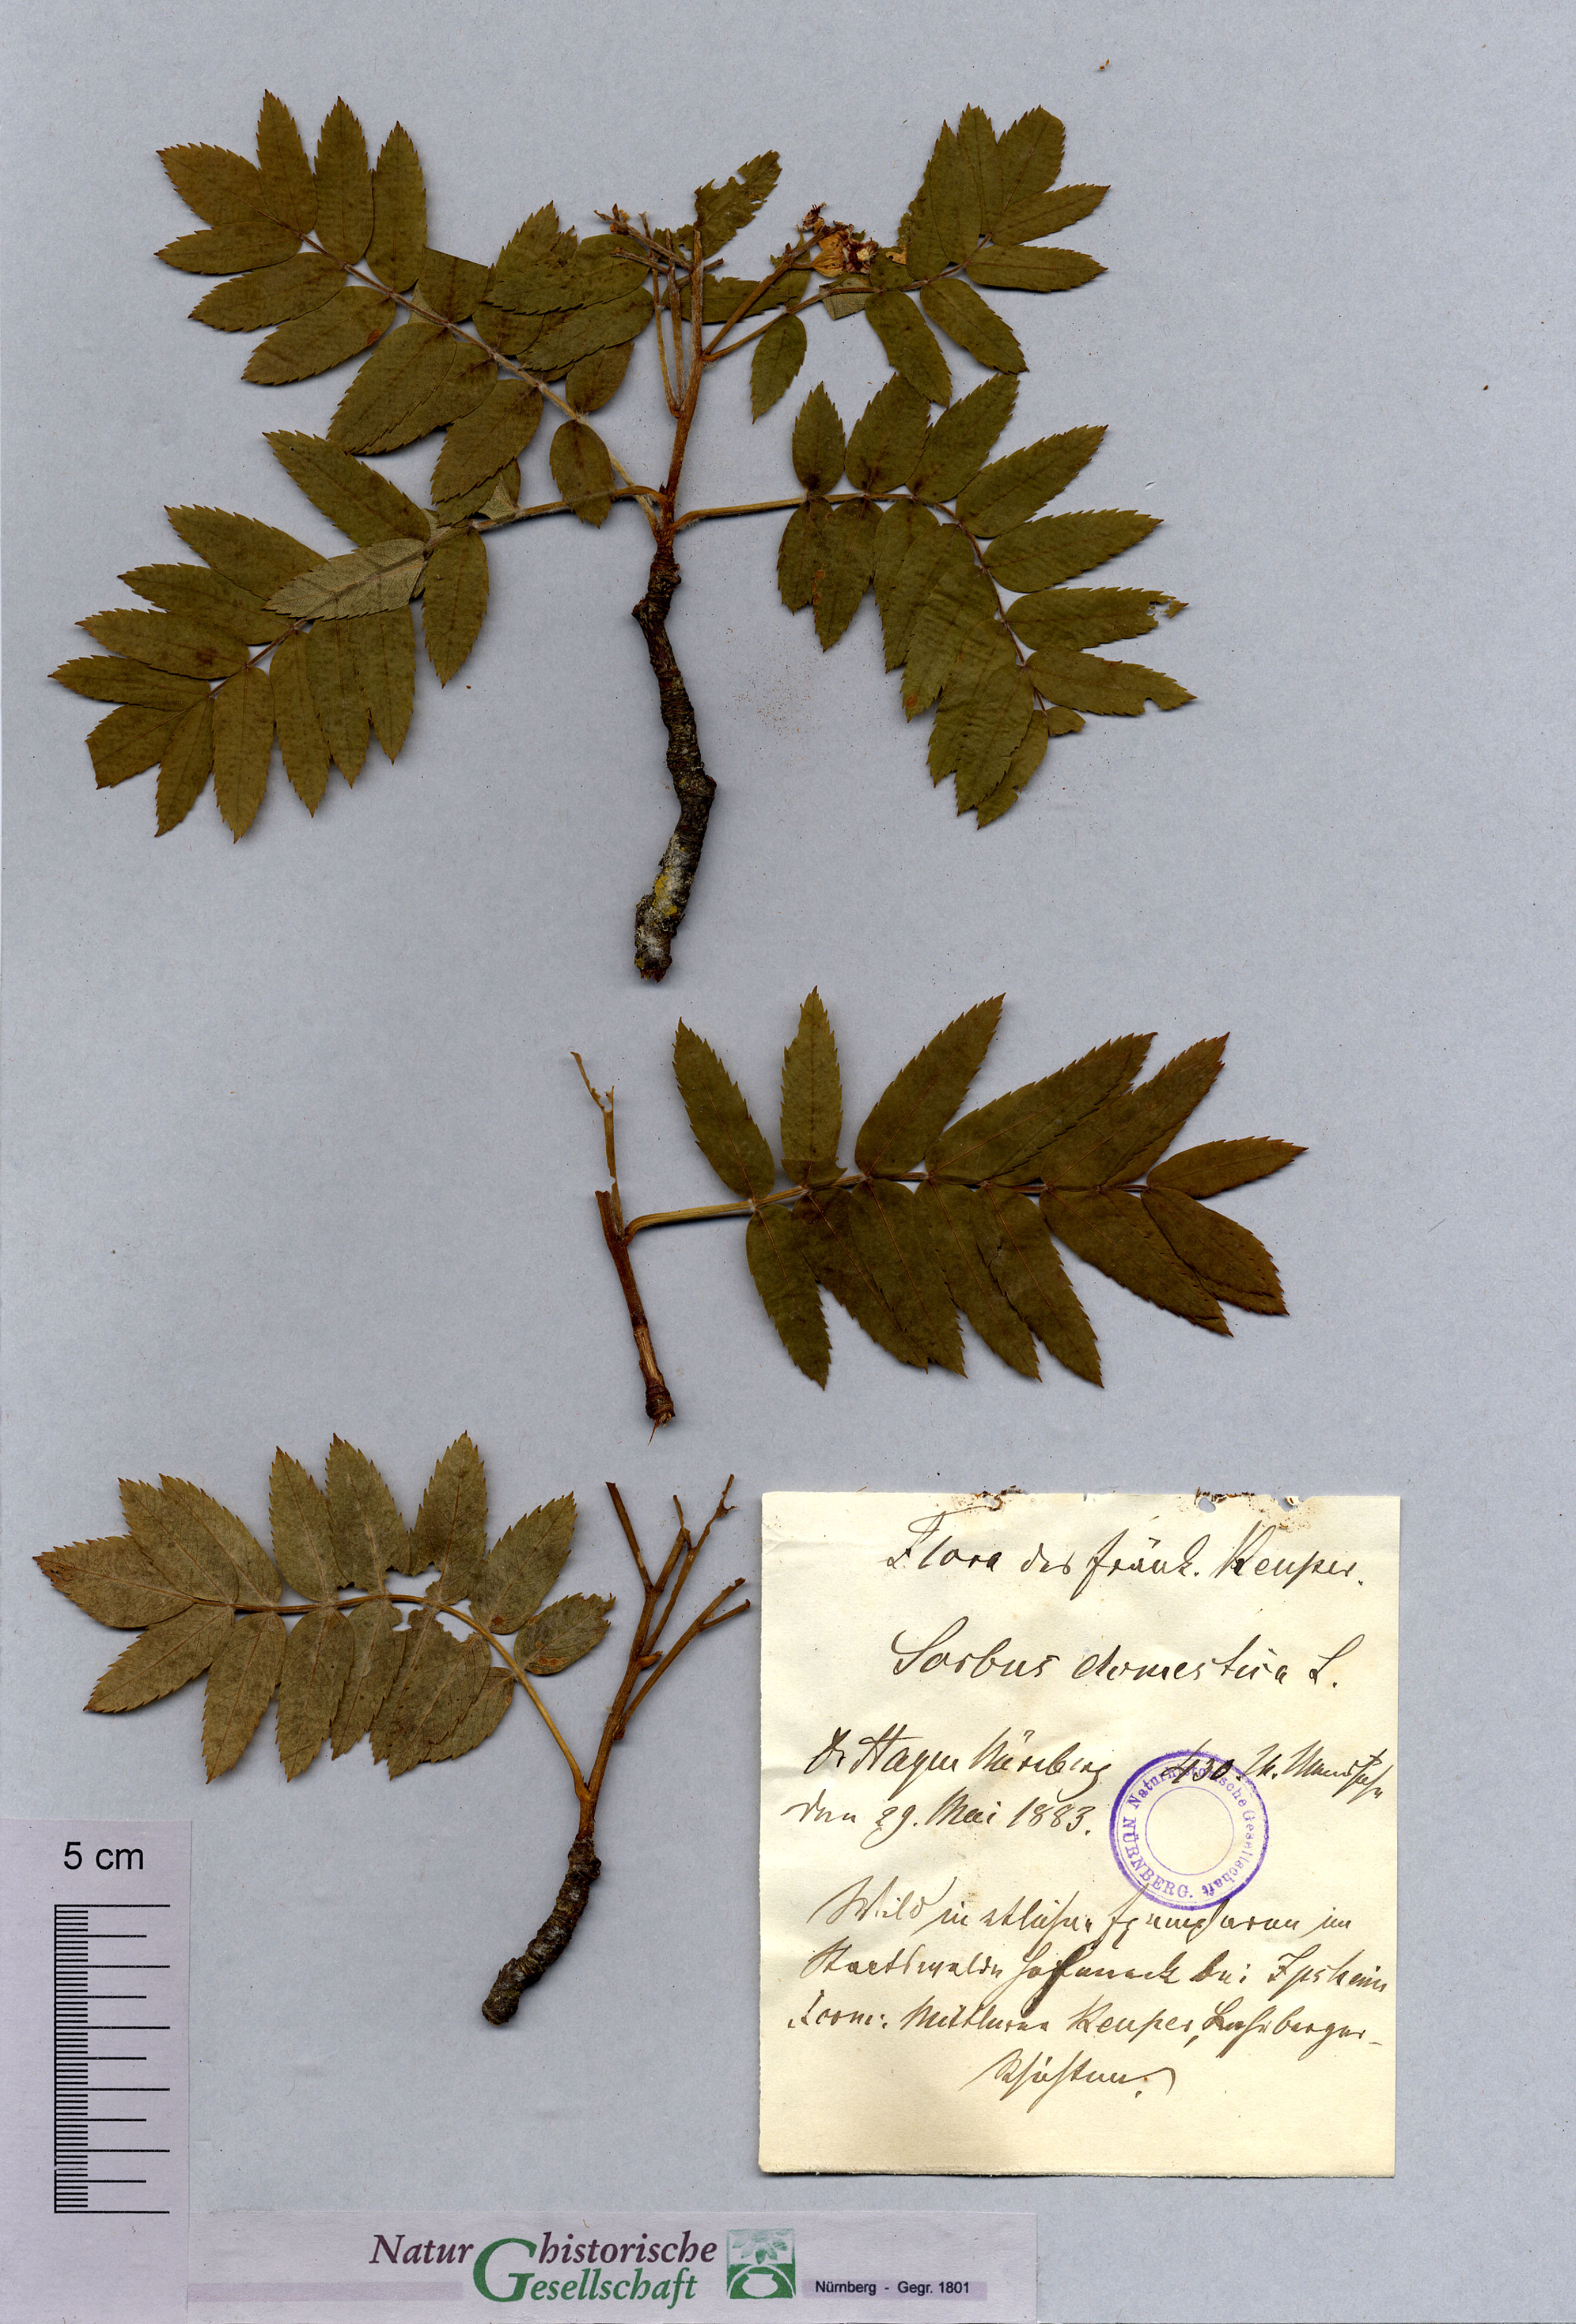 Flora des fränk. Keuper.
Sorbus domestica L.
Dr Hagen Nürnberg 430. M.
den 29. Mai 1883.
Naturhistorische Gesellschaft NÜRNBERG.
Wild in etlichen Exemplaren im
Staatswalde Hoheneck bei Ipsheim
Form: Mittlerer Keuper, Lehrberger-
Schichten.
5 cm
Naturhistorische
Gesellschaft
Nürnberg - Gegr. 1801